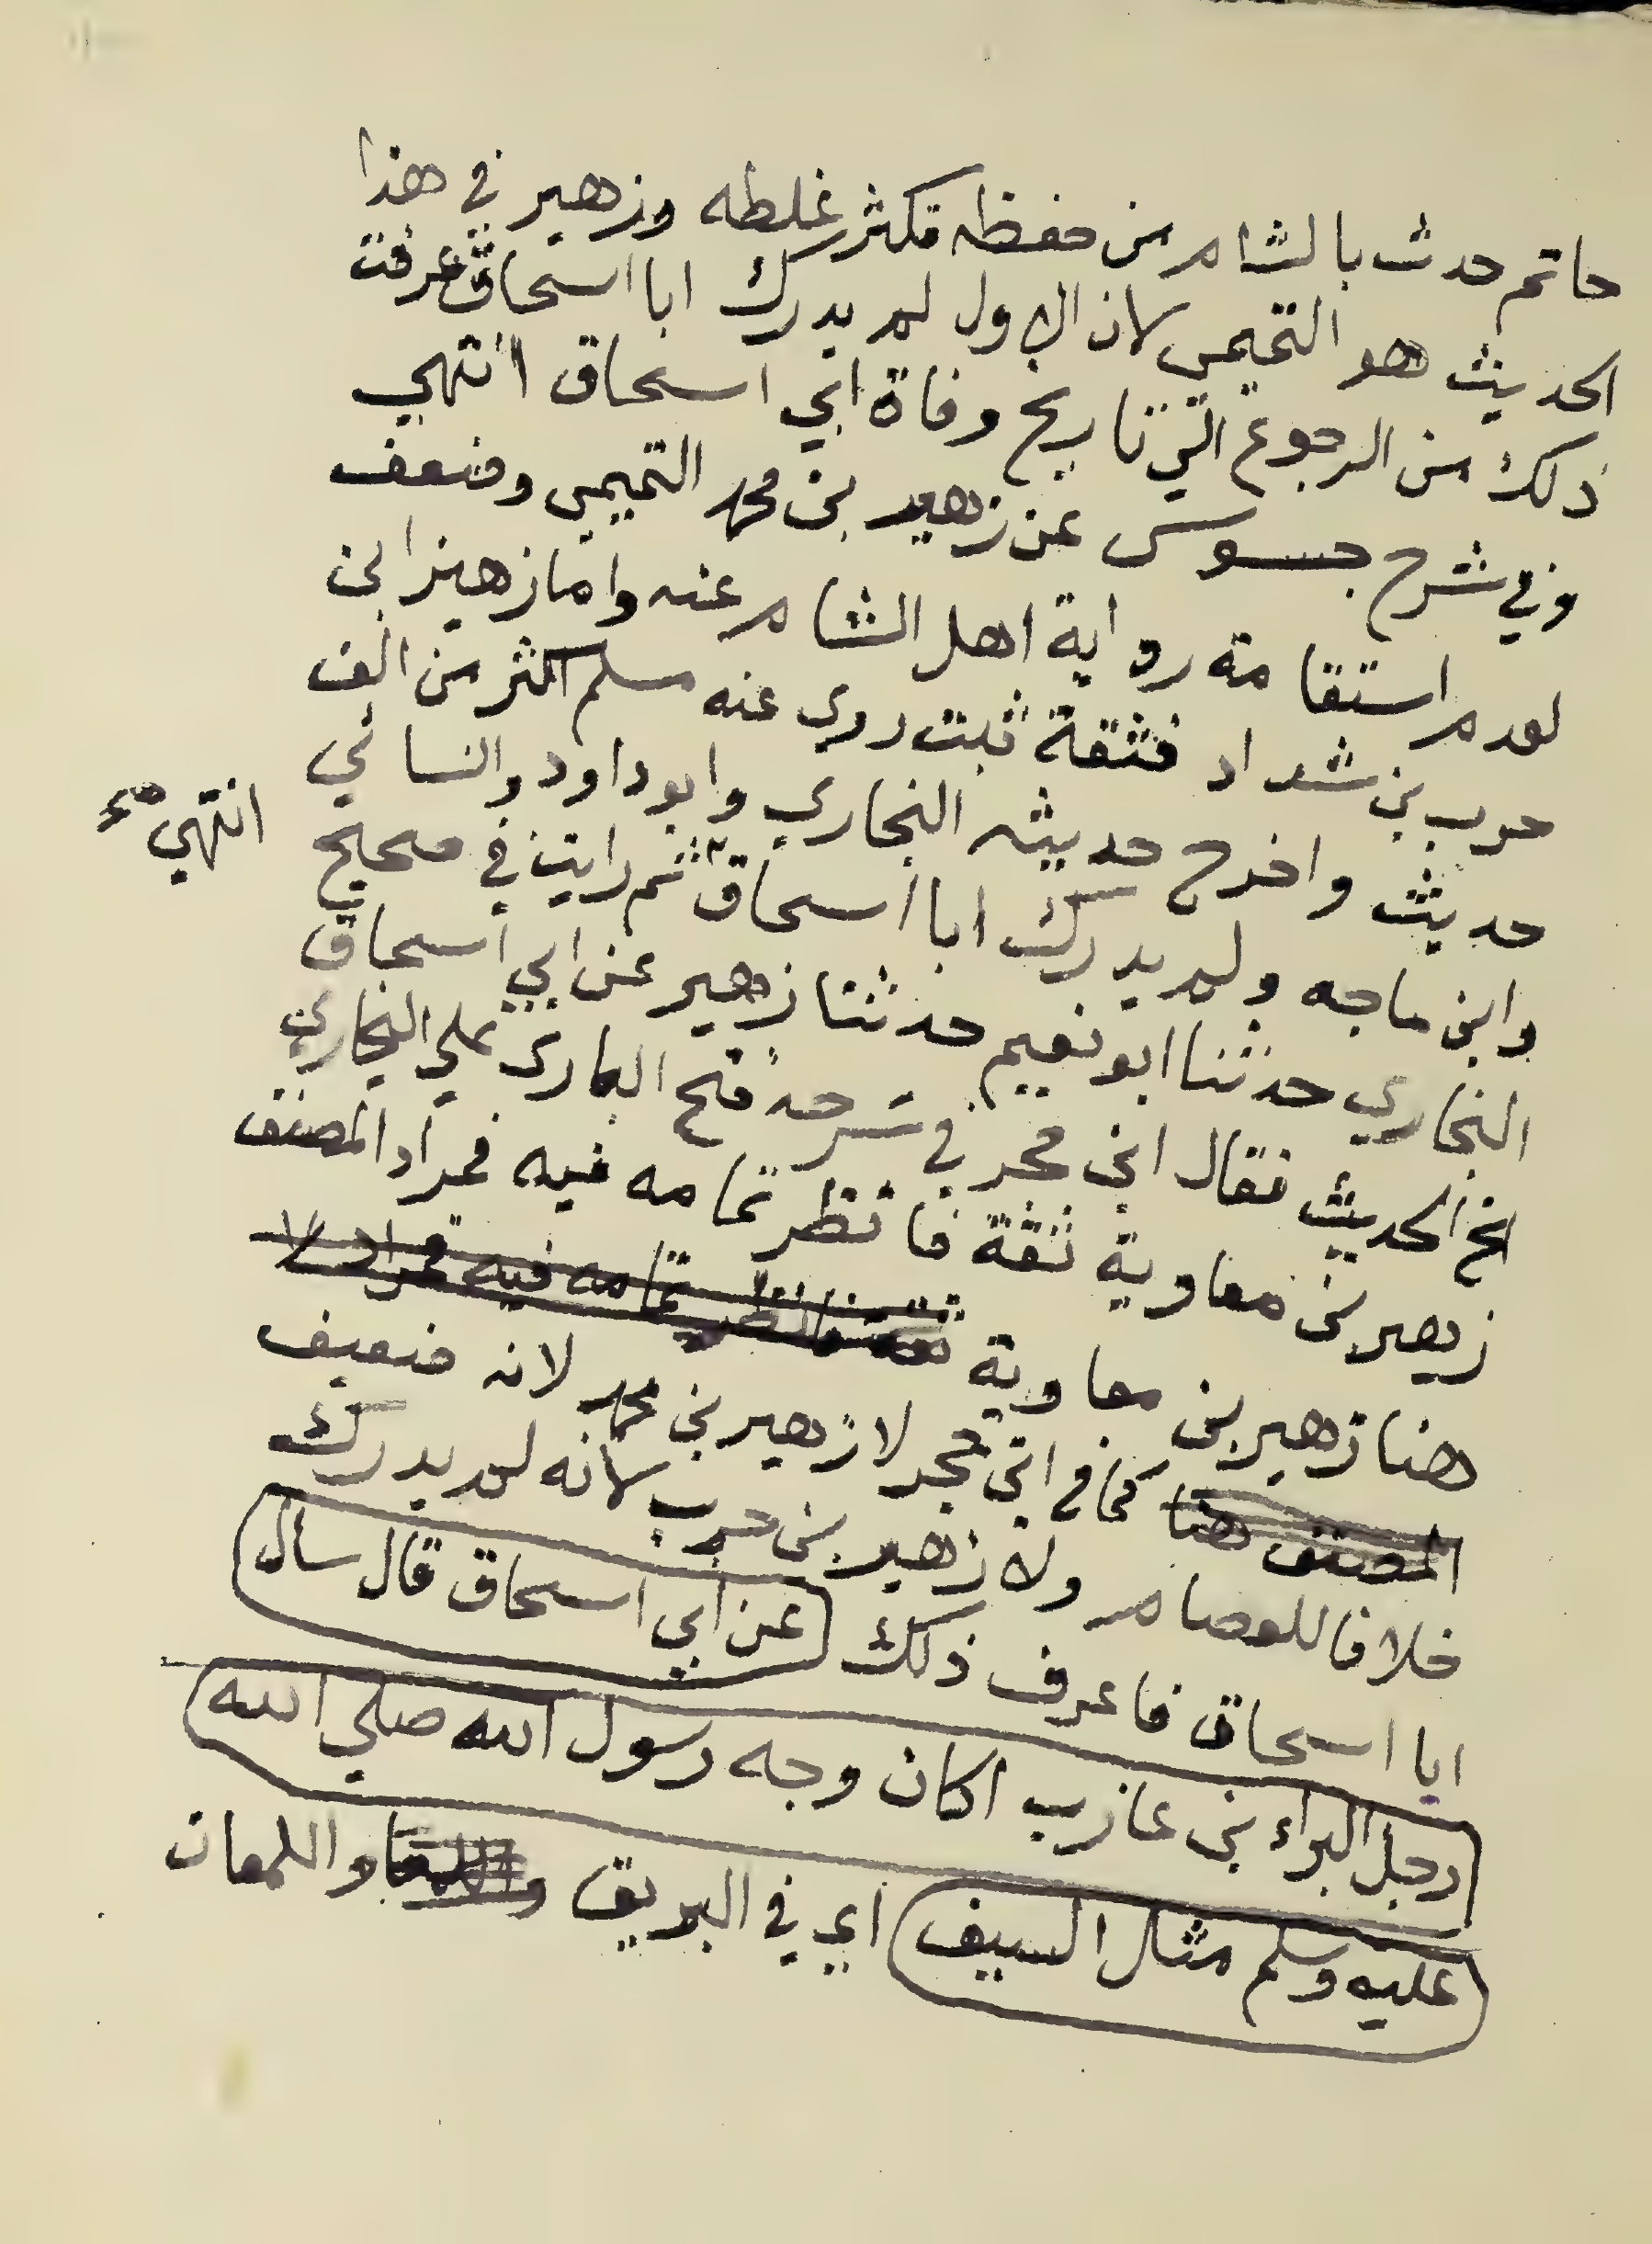 حاتم حدث بالشام من حفظه فكثر غلطه وزهير في هذا
الحديث هو التميمي لان الاول لم يدرك ابا اسحاق عرفت
ذلك من الرجوع الي تاريخ وفاة ابي اسحاق انتهي
وفي شرح جسوس عن زهير بن محمد التميمي وضعف
لعدم استقامة رواية اهل الشام عنه واما زهير ابن
حرب بن شداد فثقة ثبت روى عنه مسلم اكثر من الف
حديث واخرج حديثه البخاري وابو داود والنسائي
وابن ماجه ولم يدرك ابا اسحاق ثم رايت في صحيح
انتهي
البخاري حدثنا ابو نعيم حدثنا زهير عن ابي اسحاق
الخ الحديث فقال ابن حجر في شرحه فتح الباري علي البخاري
زهير بن معاوية ثقة فانظر تمامه فيه فمراد المصنف
هنا زهير بن معاوية ثقة فانظر تمامه فيه فمراد ا
المصنف هنا كما في ابن حجر لا زهير بن محمد لانه ضعيف
خلافا للعصام ولا زهير بن حرب لانه لم يدرك
ابا اسحاق فاعرف ذلك عن ابي اسحاق قال سال
رجل البراء بن عازب اكان وجه رسول الله صلي الله
عليه وسلم مثل السيف اي في البريق واللمعا واللمعان